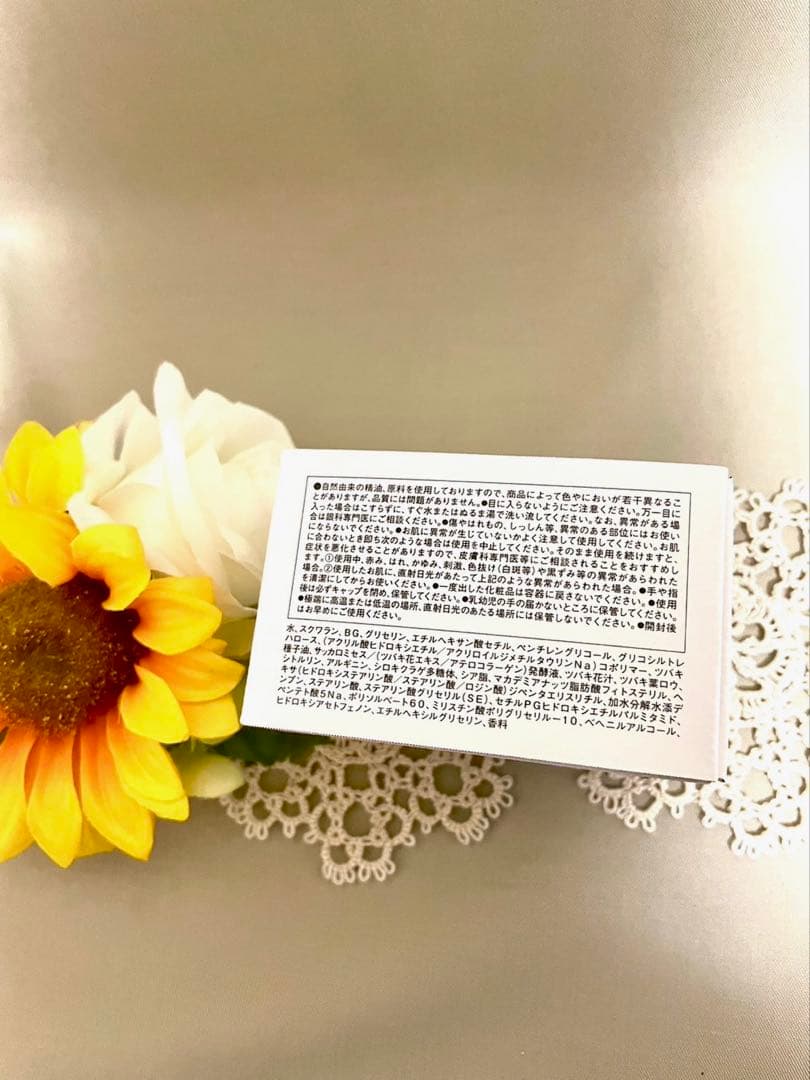 ●自然由来の精油、原料を使用しておりますので、商品によって色やにおいが若干異なるこ
とがありますが、品質には問題がありません。●目に入らないようにご注意ください。万一目に
入った場合はこすらずに、すぐ水またはぬるま湯で洗い流してください。なお、異常がある場
合は眼科専門医にご相談ください。●傷やはれもの、しっしん等、異常のある部位にはお使い
にならないでください。●お肌に異常が生じていないかよく注意して使用してください。お肌
に合わないとき即ち次のような場合は使用を中止してください。そのまま使用を続けますと、
症状を悪化させることがありますので、皮膚科専門医等にご相談されることをおすすめし
ます。①使用中、赤み、はれ、かゆみ、刺激、色抜け(白斑等)や黒ずみ等の異常があらわれた
場合。②使用したお肌に、直射日光があたって上記のような異常があらわれた場合。●手や指
を清潔にしてからお使いください。●一度出した化粧品は容器に戻さないでください。●使用
後は必ずキャップを閉め、保管してください。●乳幼児の手の届かないところに保管してください。
●極端に高温または低温の場所、直射日光のあたる場所には保管しないでください。●開封後
はお早めにご使用ください。
水、スクワラン、BG、グリセリン、エチルヘキサン酸セチル、ペンチレングリコール、グリコシルトレ
ハロース、(アクリル酸ヒドロキシエチル/アクリロイルジメチルタウリンNa)コポリマー、ツバキ
種子油、サッカロミセス/(ツバキ花エキス/アテロコラーゲン)発酵液、ツバキ花汁、ツバキ葉ロウ、
シトルリン、アルギニン、シロキクラゲ多糖体、シア脂、マカデミアナッツ脂肪酸フィトステリル、ヘ
キサ(ヒドロキシステアリン酸/ステアリン酸/ロジン酸)ジペンタエリスリチル、加水分解水添デ
ンプン、ステアリン酸、ステアリン酸グリセリル(SE)、セチルPGヒドロキシエチルパルミタミド、
ペンテト酸5Na、ポリソルベート60、ミリスチン酸ポリグリセリル-10、ベヘニルアルコール、
ヒドロキシアセトフェノン、エチルヘキシルグリセリン、香料